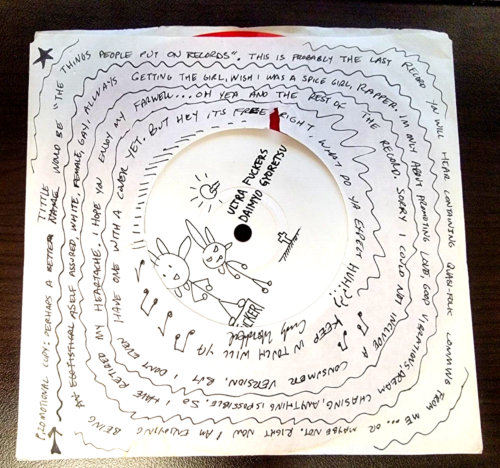 PROMOTIONAL COPY: PERHAPS A BETTER TITTLE WOULD BE
"THE THINGS PEOPLE PUT ON RECORDS". THIS IS PROBABLY THE LAST RECORD
YA WILL HEAR CONTAINING QUASI-FOLK COMMING FROM
ME... OR MAYBE NOT. RIGHT NOW I AM ENJOYING BEING
SELF ASSURED, WHITE, FEMALE, GAY, ALLWAYS
GETTING THE GIRL, WISH I WAS A SPICE GIRL, RAPPER.
IM ONLY ABOUT PROMOTING LOVE, GOOD VIBRATIONS, DREAM
CHASING, ANYTHING IS POSSIBLE. SO I HAVE
RETIRED MY HEARTACHE. I HOPE YOU ENJOY
MY FARWELL... OH YEA AND THE REST OF
THE RECORD. SORRY I COULD NOT INCLUDE A
CONSUMER VERSION. BUT I DONT EVEN
HAVE ONE WITH A COVER YET. BUT HEY ITS FREE RIGHT.
WHAT DO YA EXPECT HUH!?...
KEEP IN TOUCH WILL YA
ULTRA FUCKERS
DAIMYO GYORETSU